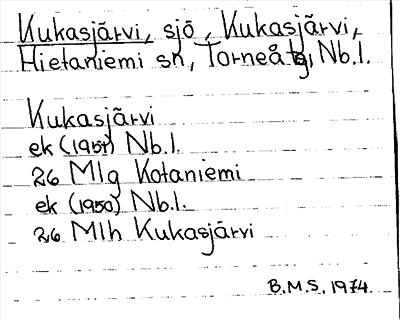 Kukasjärvi, sjö, Kukasjärvi,
Hietaniemi sn, Torneå tg, Nb.l.
Kukasjärvi
ek (1951) Nb.l.
26 Mlg Kotaniemi
ek (1950) Nb.l.
26 Mlh Kukasjärvi
B.M.S. 1974